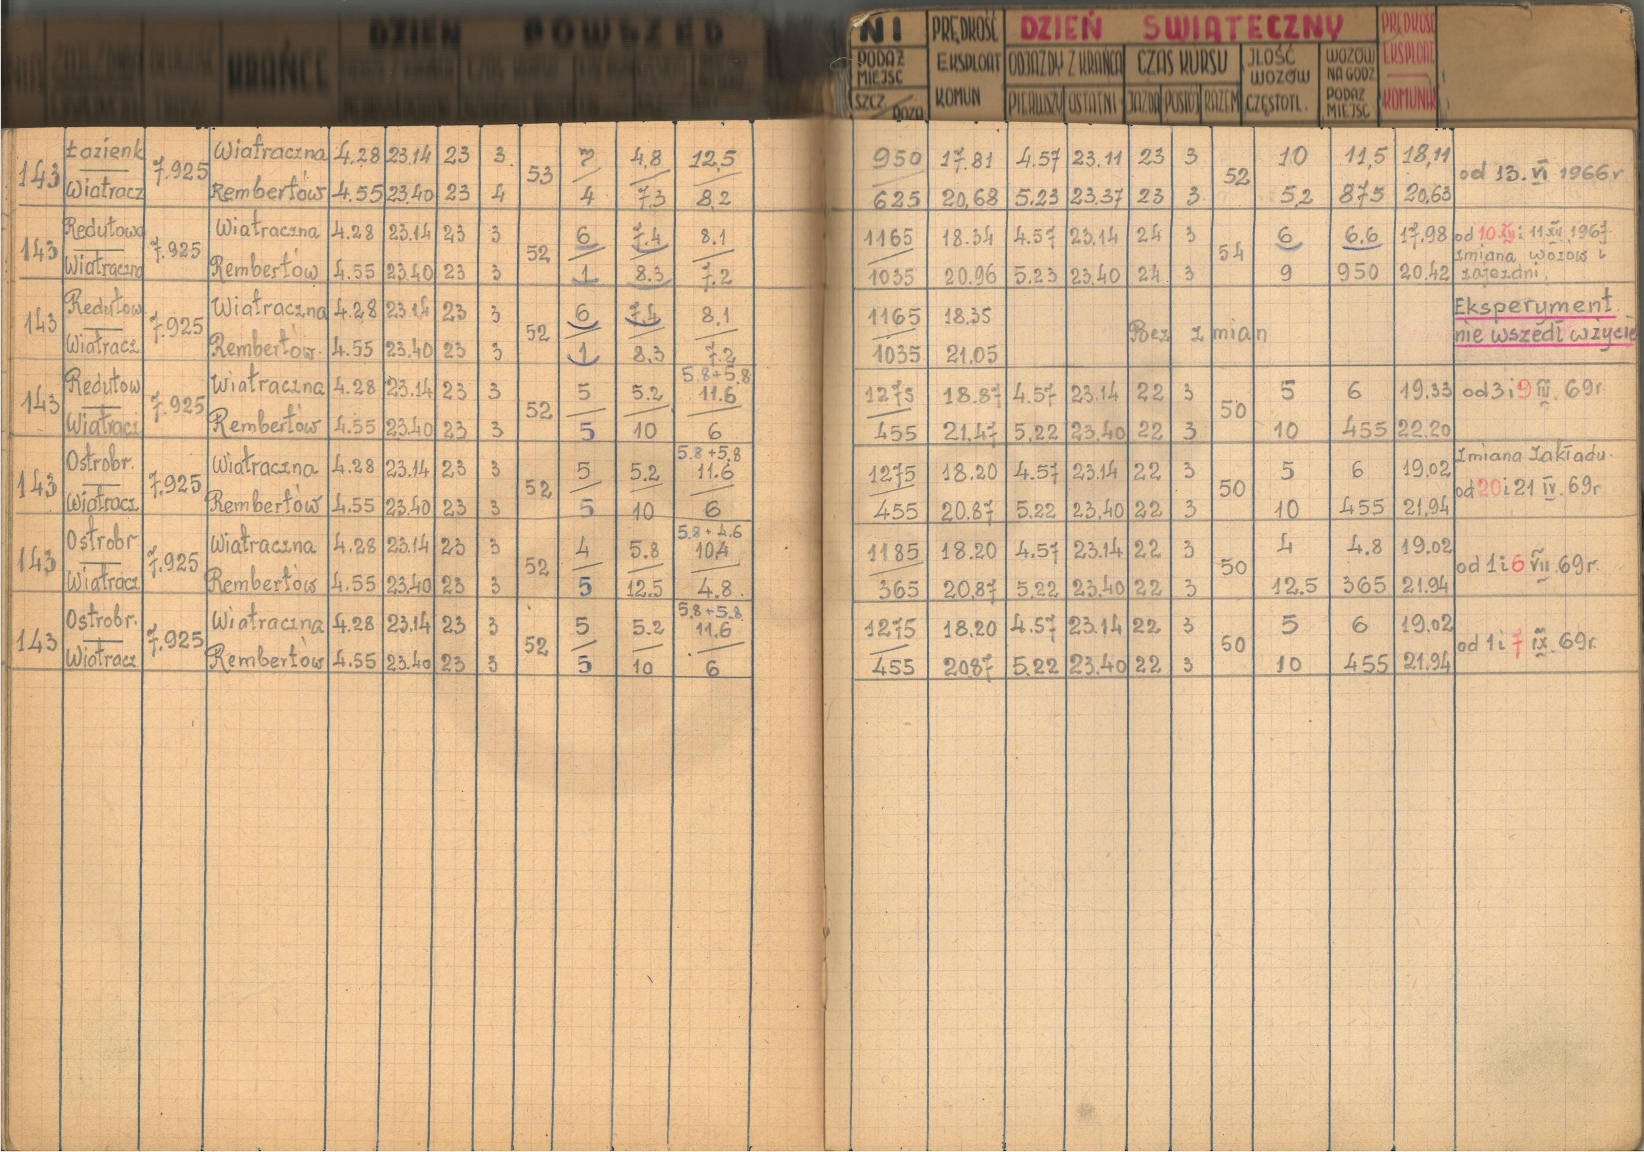 DZIEŃ POWSZED
KRAŃCE
NI PRĘDKOŚĆ DZIEŃ ŚWIĄTECZNY PRĘDKOŚĆ
PODAŻ MIEJSC EKSPLOAT ODJAZDY Z KRAŃCA CZAS KURSU JLOŚĆ WOZÓW WOZÓW NA GODZ EKSPLOAT.
SZCZ./POZA KOMUN PIERWSZY OSTATNI JAZDA POSTÓJ RAZEM CZĘSTOTL. PODAŻ MIEJSC KOMUNIK
143 Łazienk 7.925 Wiatraczna 4.28 23.14 23 3 53 7 4,8 12,5 950 17,81 4.57 23.11 23 3 52 10 11,5 18,11 od 13. VI 1966r
Wiatracz Rembertów 4.55 23.40 23 4 4 7,3 8,2 625 20,68 5.23 23.37 23 3 5,2 875 20,63
143 Redutowa 7.925 Wiatraczna 4.28 23.14 23 3 52 6 7.4 8.1 1165 18.34 4.57 23.14 24 3 54 6 6.6 17.98 od 10.XII i 11 XII 1967
Wiatraczna Rembertów 4.55 23.40 23 3 1 8.3 7.2 1035 20.96 5.23 23.40 24 3 9 950 20.42 zmiana wozów i zajezdni.
143 Redutow. 7.925 Wiatraczna 4.28 23.14 23 3 52 6 7.4 8.1 1165 18.35 Bez zmian Eksperyment
Wiatracz Rembertów 4.55 23.40 23 3 1 8.3 7.2 1035 21.05 nie wszedł w życie
5.8+5.8
143 Redutow 7.925 Wiatraczna 4.28 23.14 23 3 52 5 5.2 11.6 1275 18.87 4.57 23.14 22 3 50 5 6 19.33 od 3 i 9 III. 69r
Wiatracz Rembertów 4.55 23.40 23 3 5 10 6 455 21.47 5.22 23.40 22 3 10 455 22.20
5.8+5.8
143 Ostrobr. 7.925 Wiatraczna 4.28 23.14 23 3 52 5 5.2 11.6 1275 18.20 4.57 23.14 22 3 50 5 6 19.02 Zmiana Zakładu.
Wiatracz Rembertów 4.55 23.40 23 3 5 10 6 455 20.87 5.22 23.40 22 3 10 455 21.94 od 20 i 21 IV. 69r
5.8+4.6
143 Ostrobr 7.925 Wiatraczna 4.28 23.14 23 3 52 4 5.8 10.4 1185 18.20 4.57 23.14 22 3 50 4 4.8 19.02 od 1 i 6 VII. 69r.
Wiatracz Rembertów 4.55 23.40 23 3 5 12.5 4.8 365 20.87 5.22 23.40 22 3 12.5 365 21.94
5.8+5.8
143 Ostrobr. 7.925 Wiatraczna 4.28 23.14 23 3 52 5 5.2 11.6 1275 18.20 4.57 23.14 22 3 50 5 6 19.02 od 1 i 7 IX. 69r.
Wiatracz Rembertów 4.55 23.40 23 3 5 10 6 455 2087 5.22 23.40 22 3 10 455 21.94